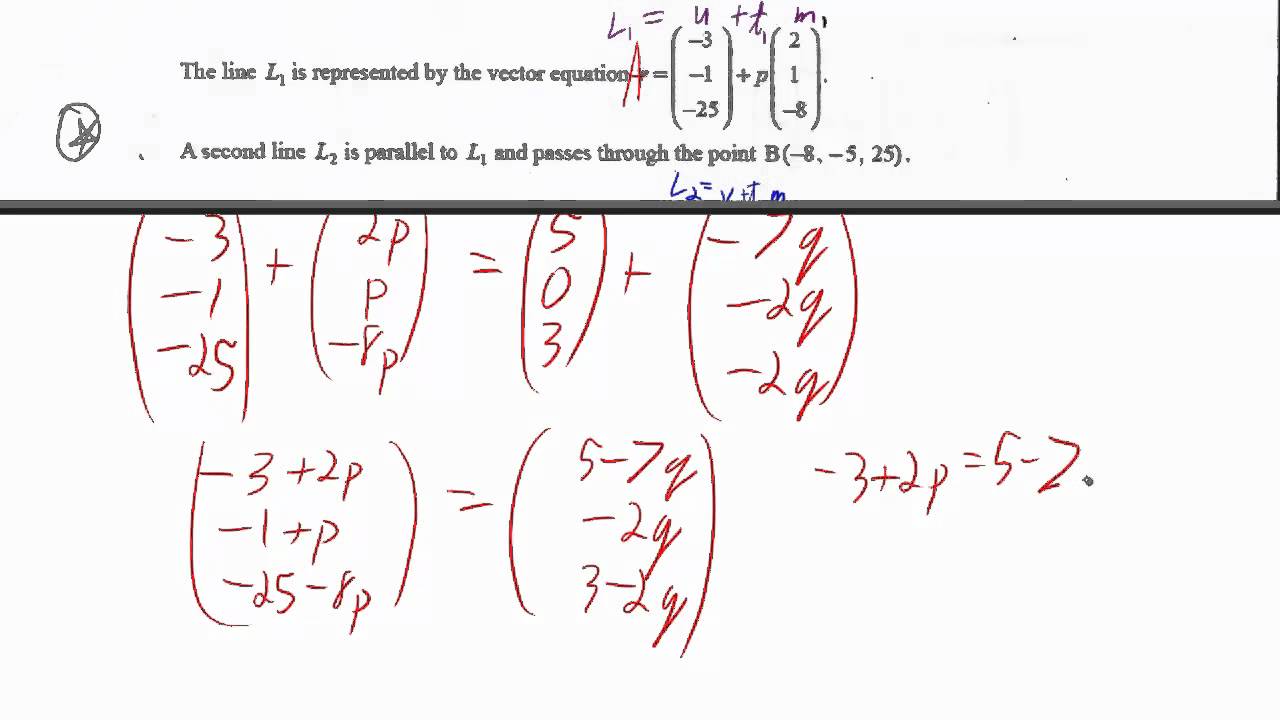 L₁ = u + t₁ m₁
The line L₁ is represented by the vector equation r = (−3 −1 −25) + p (2 1 −8).
A
A second line L₂ is parallel to L₁ and passes through the point B(−8, −5, 25).
L₂ = v + t m
(−3 −1 −25) + (2p p −8p) = (5 0 3) + (−7q −2q −2q)
(−3+2p −1+p −25−8p) = (5−7q −2q 3−2q)
−3+2p = 5−7